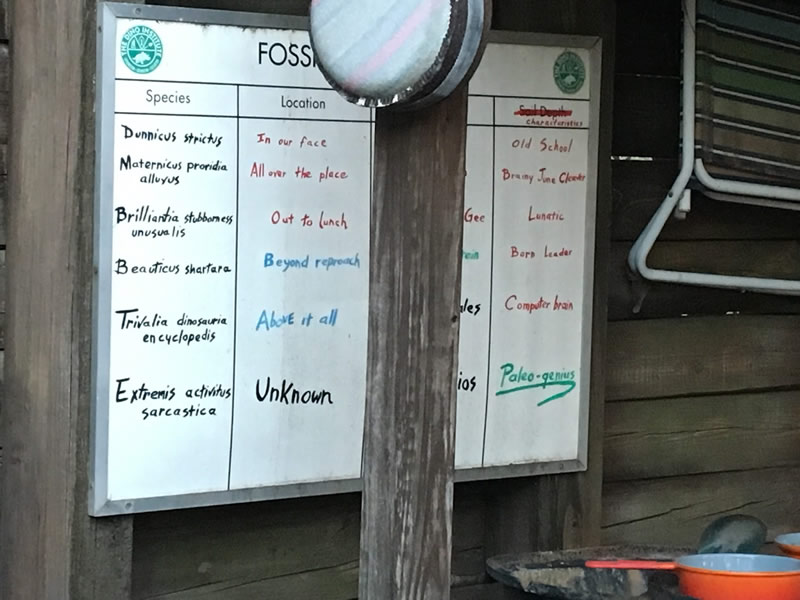 THE DINO INSTITUTE
FOSSI
Species
Location
Soil Depth
Characteristics
Dunnicus strictus
In our face
Old School
Maternicus proridia
alluvus
All over the place
Brainy June Cleaver
Brilliantia stubborness
unusualis
Out to lunch
Gee
Lunatic
Beauticus shartara
Beyond reproach
tein
Born Leader
Trivalia dinosauria
encyclopedis
Above it all
les
Computer brain
Extremis activitus
sarcastica
Unknown
ios
Paleo-genius